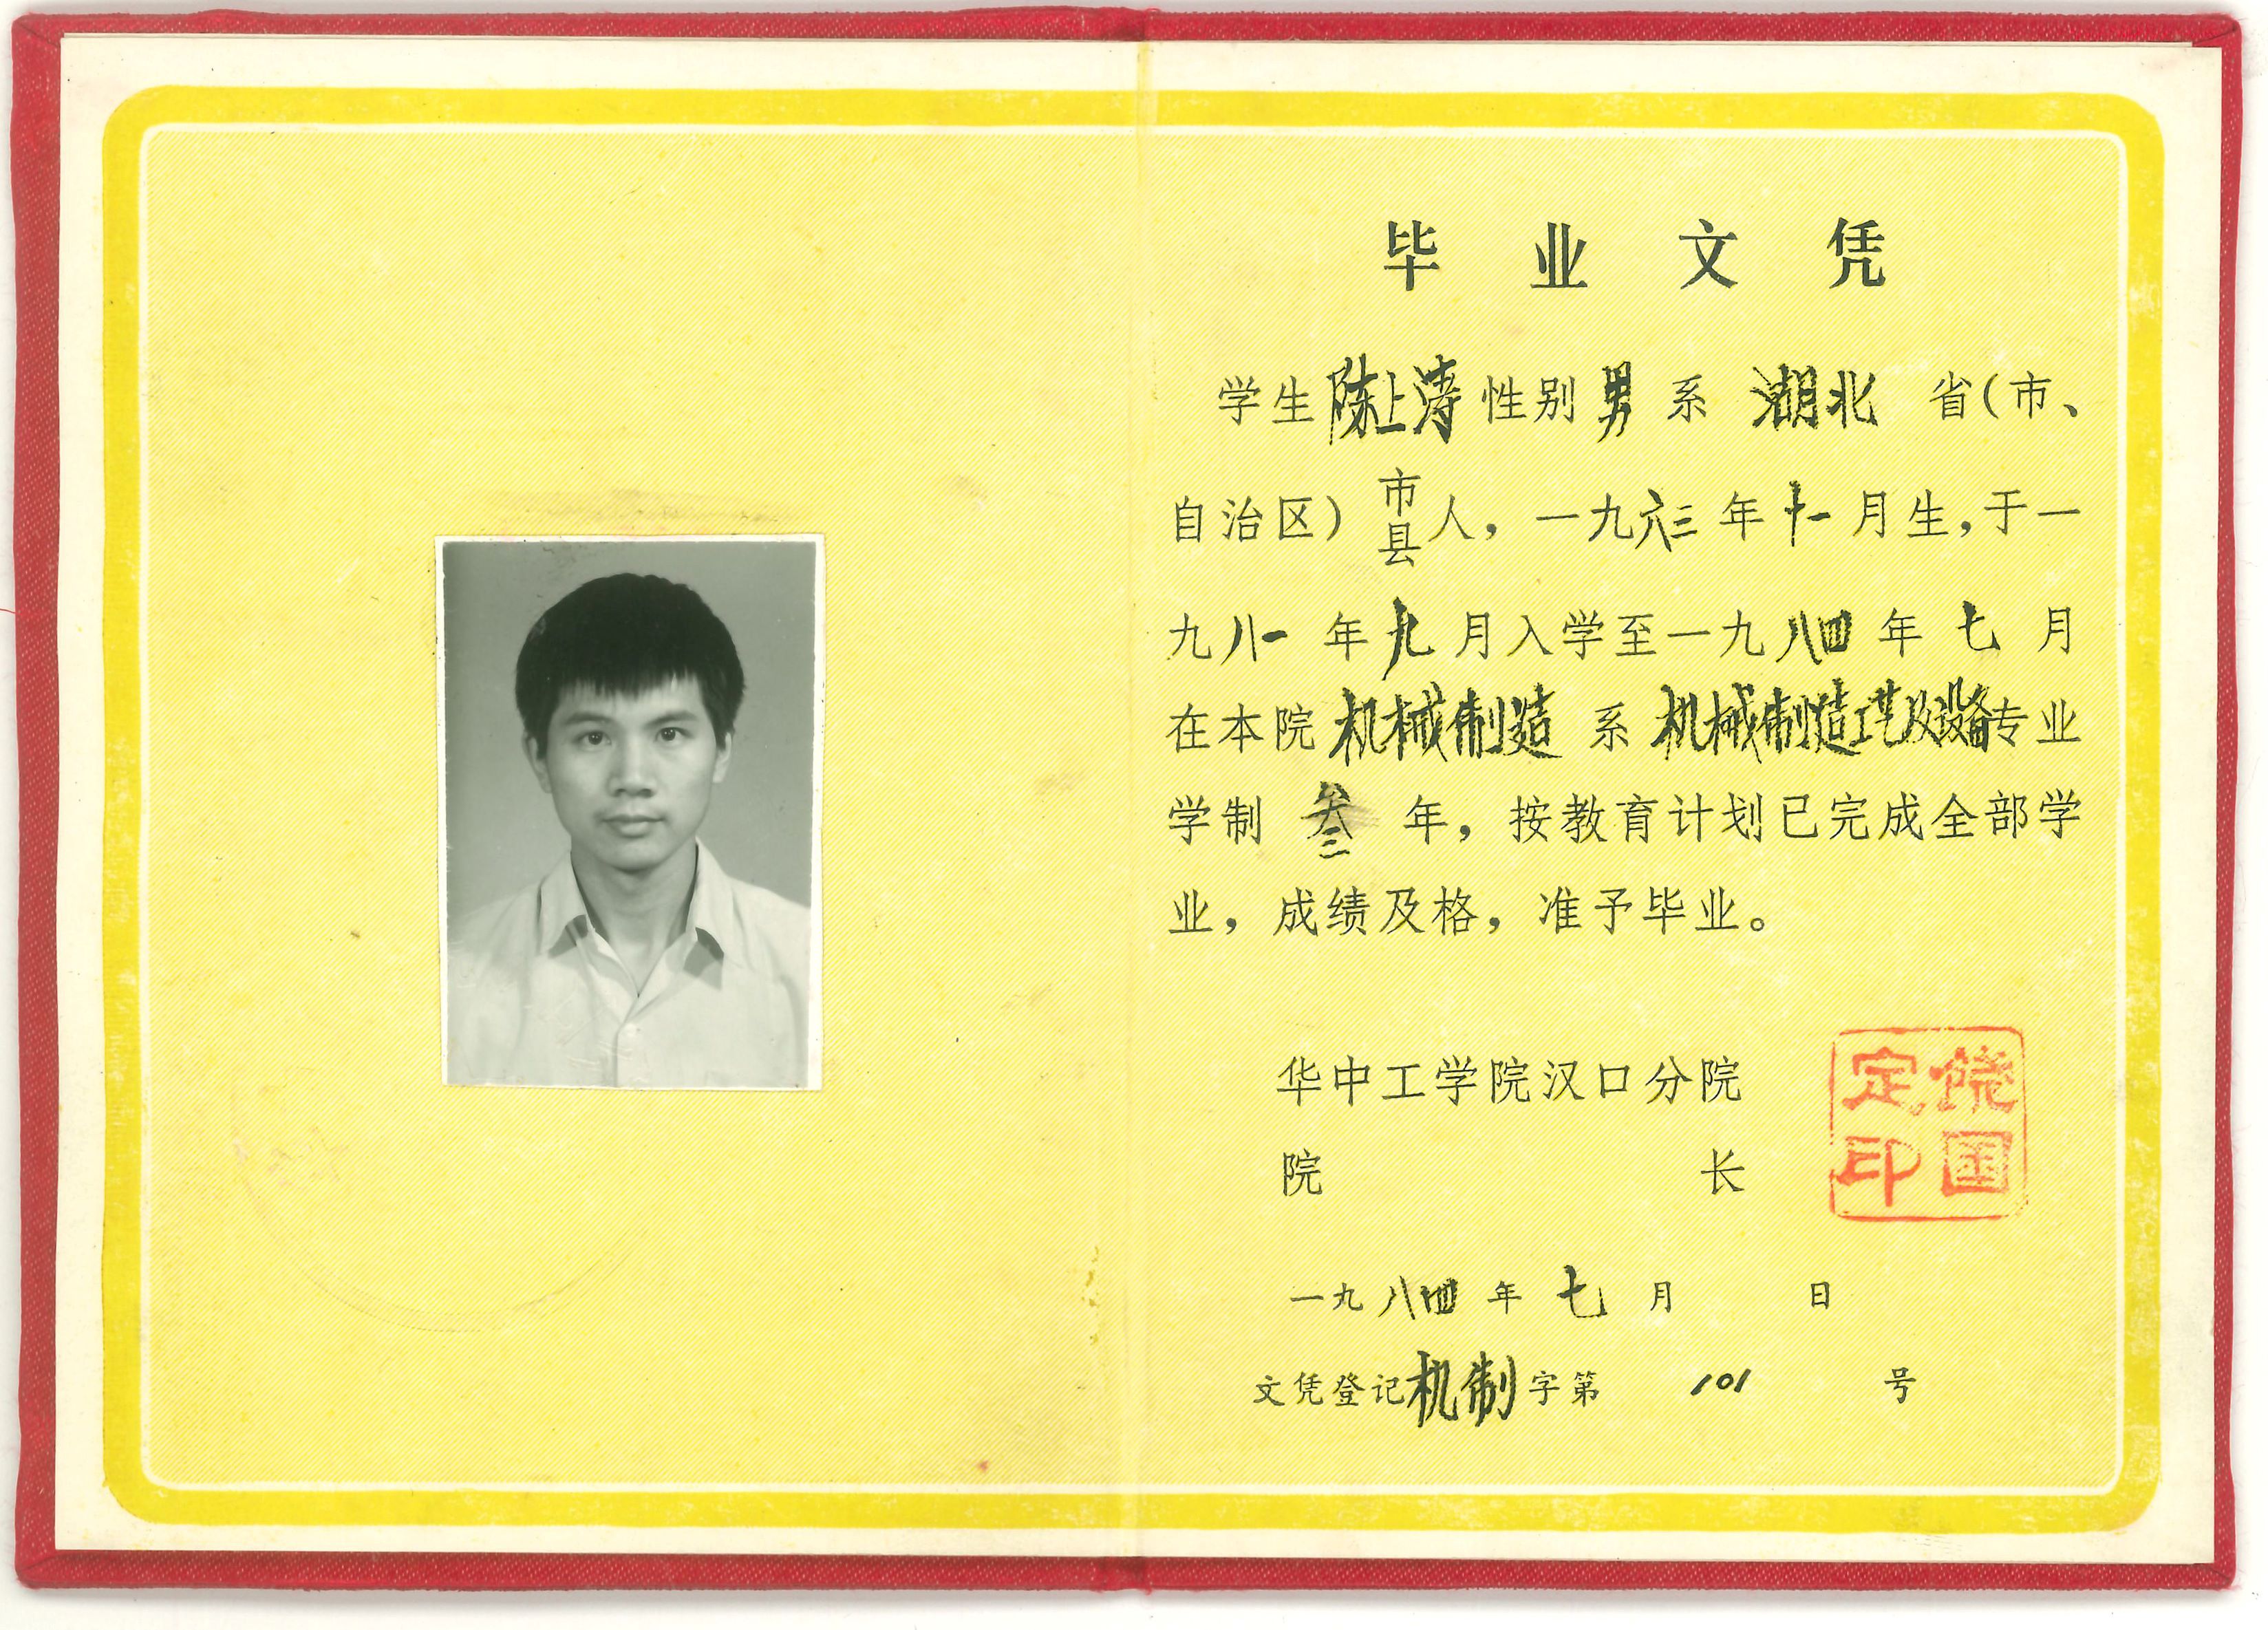 毕业文凭
学生陈上涛性别男系湖北省(市、
自治区)市县人，一九六三年十一月生，于一
九八一年九月入学至一九八四年七月
在本院机械制造系机械制造工艺及设备专业
学制叁年，按教育计划已完成全部学
业，成绩及格，准予毕业。
华中工学院汉口分院
院长
饶国定印
一九八四年七月 日
文凭登记机制字第101号